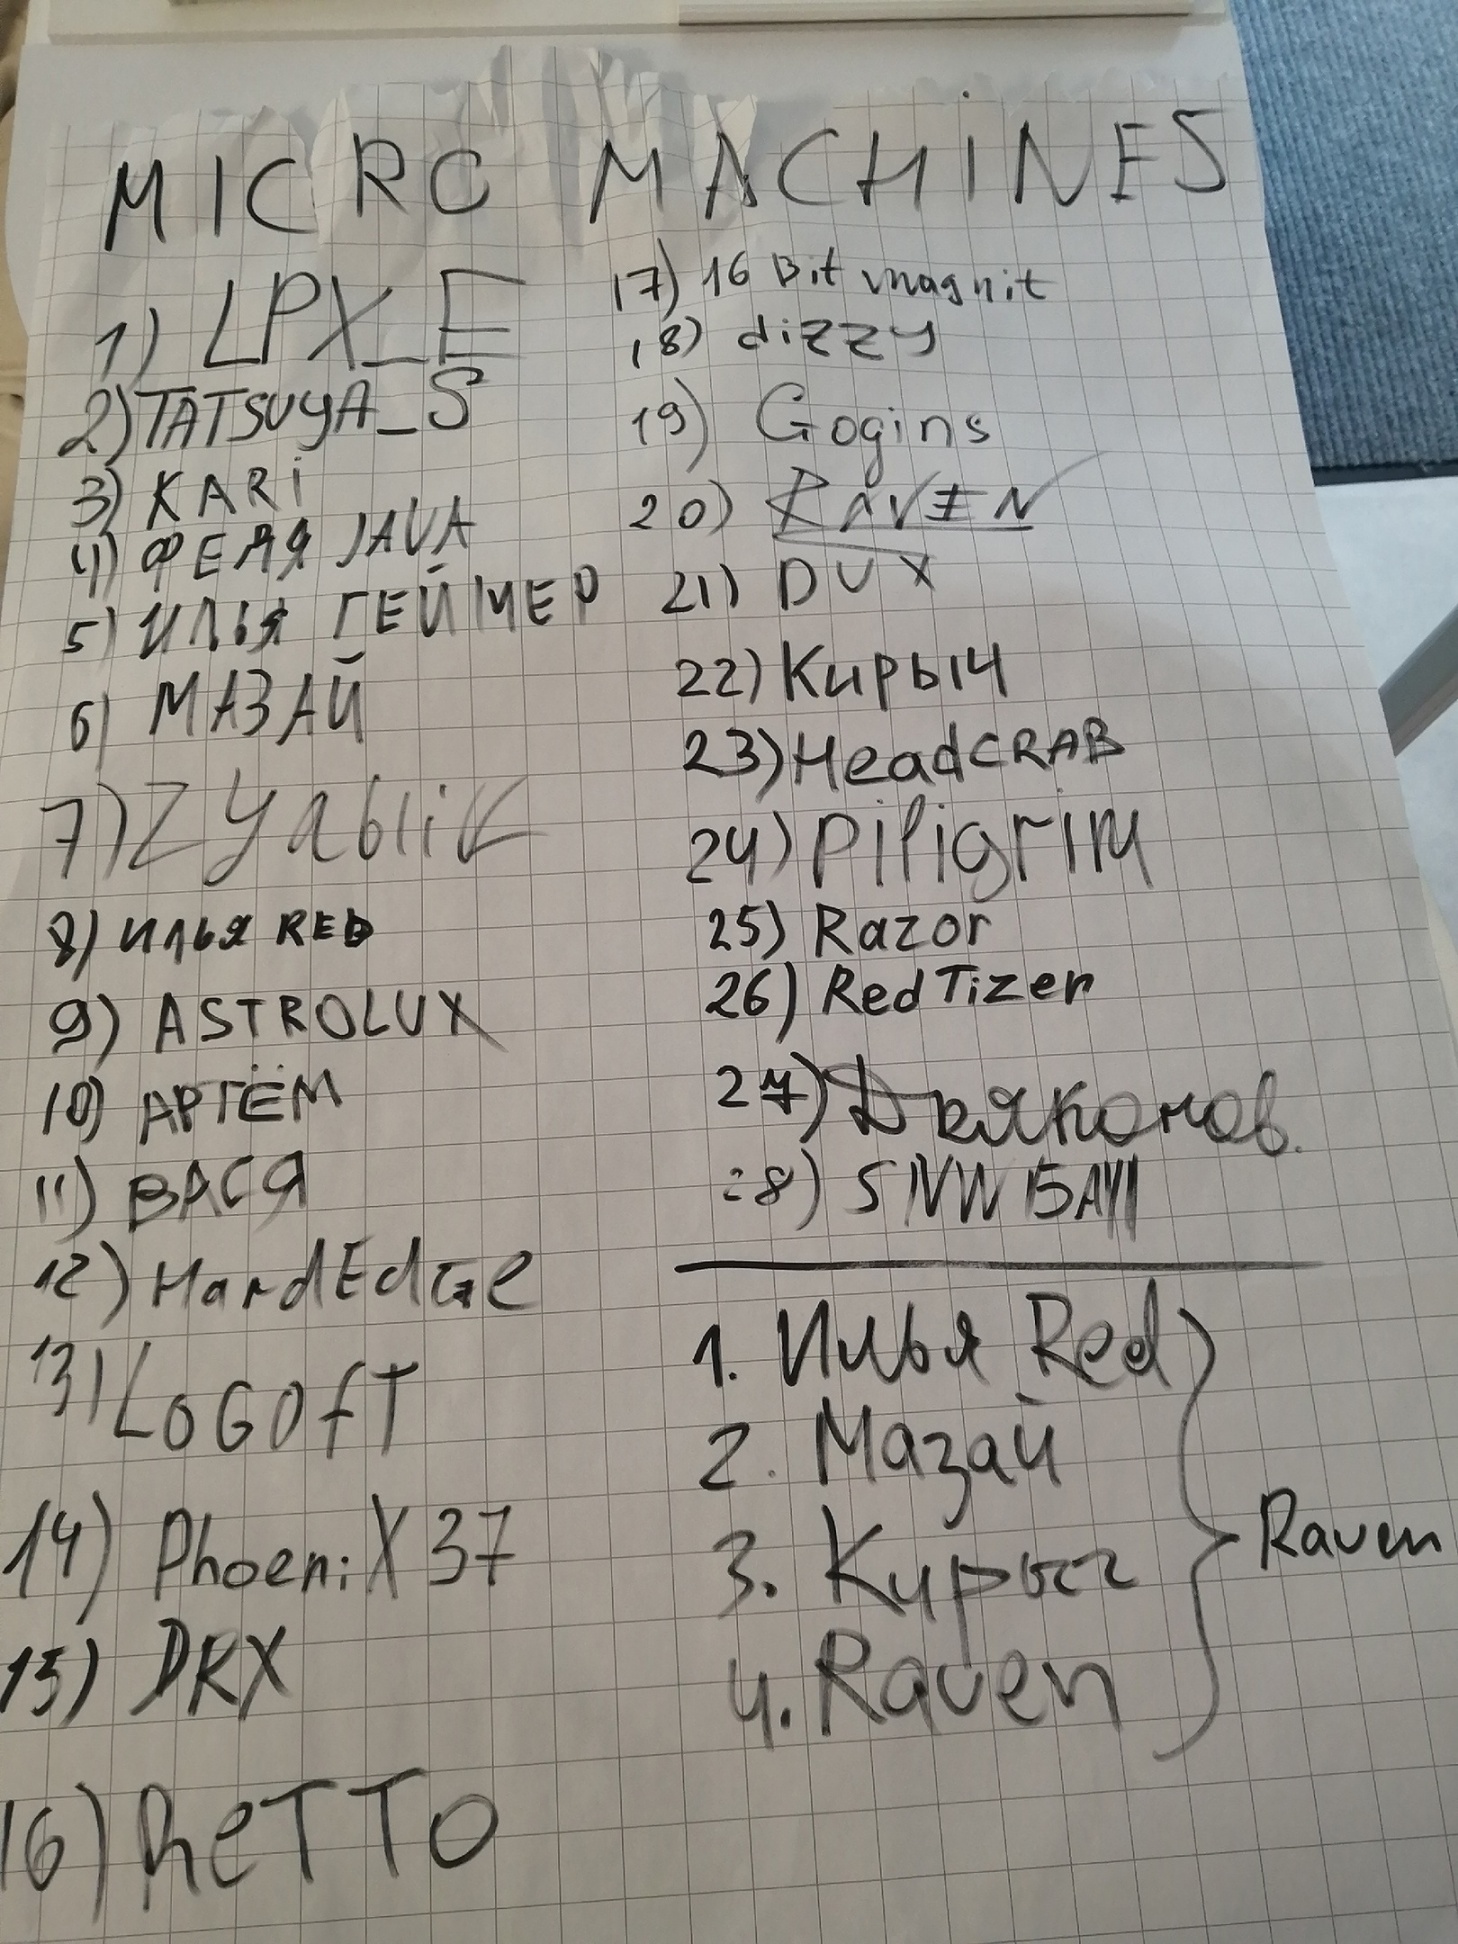 MICRO MACHINES
1) LPX_E
2) TATSUYA_S
3) KARi
4) ФЕДЯ JAVA
5) ИЛЬЯ ГЕЙМЕР
6) МАЗАЙ
7) Zyablik
8) ИЛЬЯ RED
9) ASTROLUX
10) АРТЁМ
11) ВАСЯ
12) HardEdGe
13) LOGOfT
14) PhoeniX 37
15) DRX
16) ReTTo
17) 16 Bit magnit
18) dizzy
19) Gogins
20) RAVEN
21) DUX
22) Кирыч
23) HeadCRAB
24) piligrim
25) Razor
26) RedTizer
27) Дьяконов.
28)
1. Илья Red
2. Мазай
3. Кирыч
4. Raven
Raven